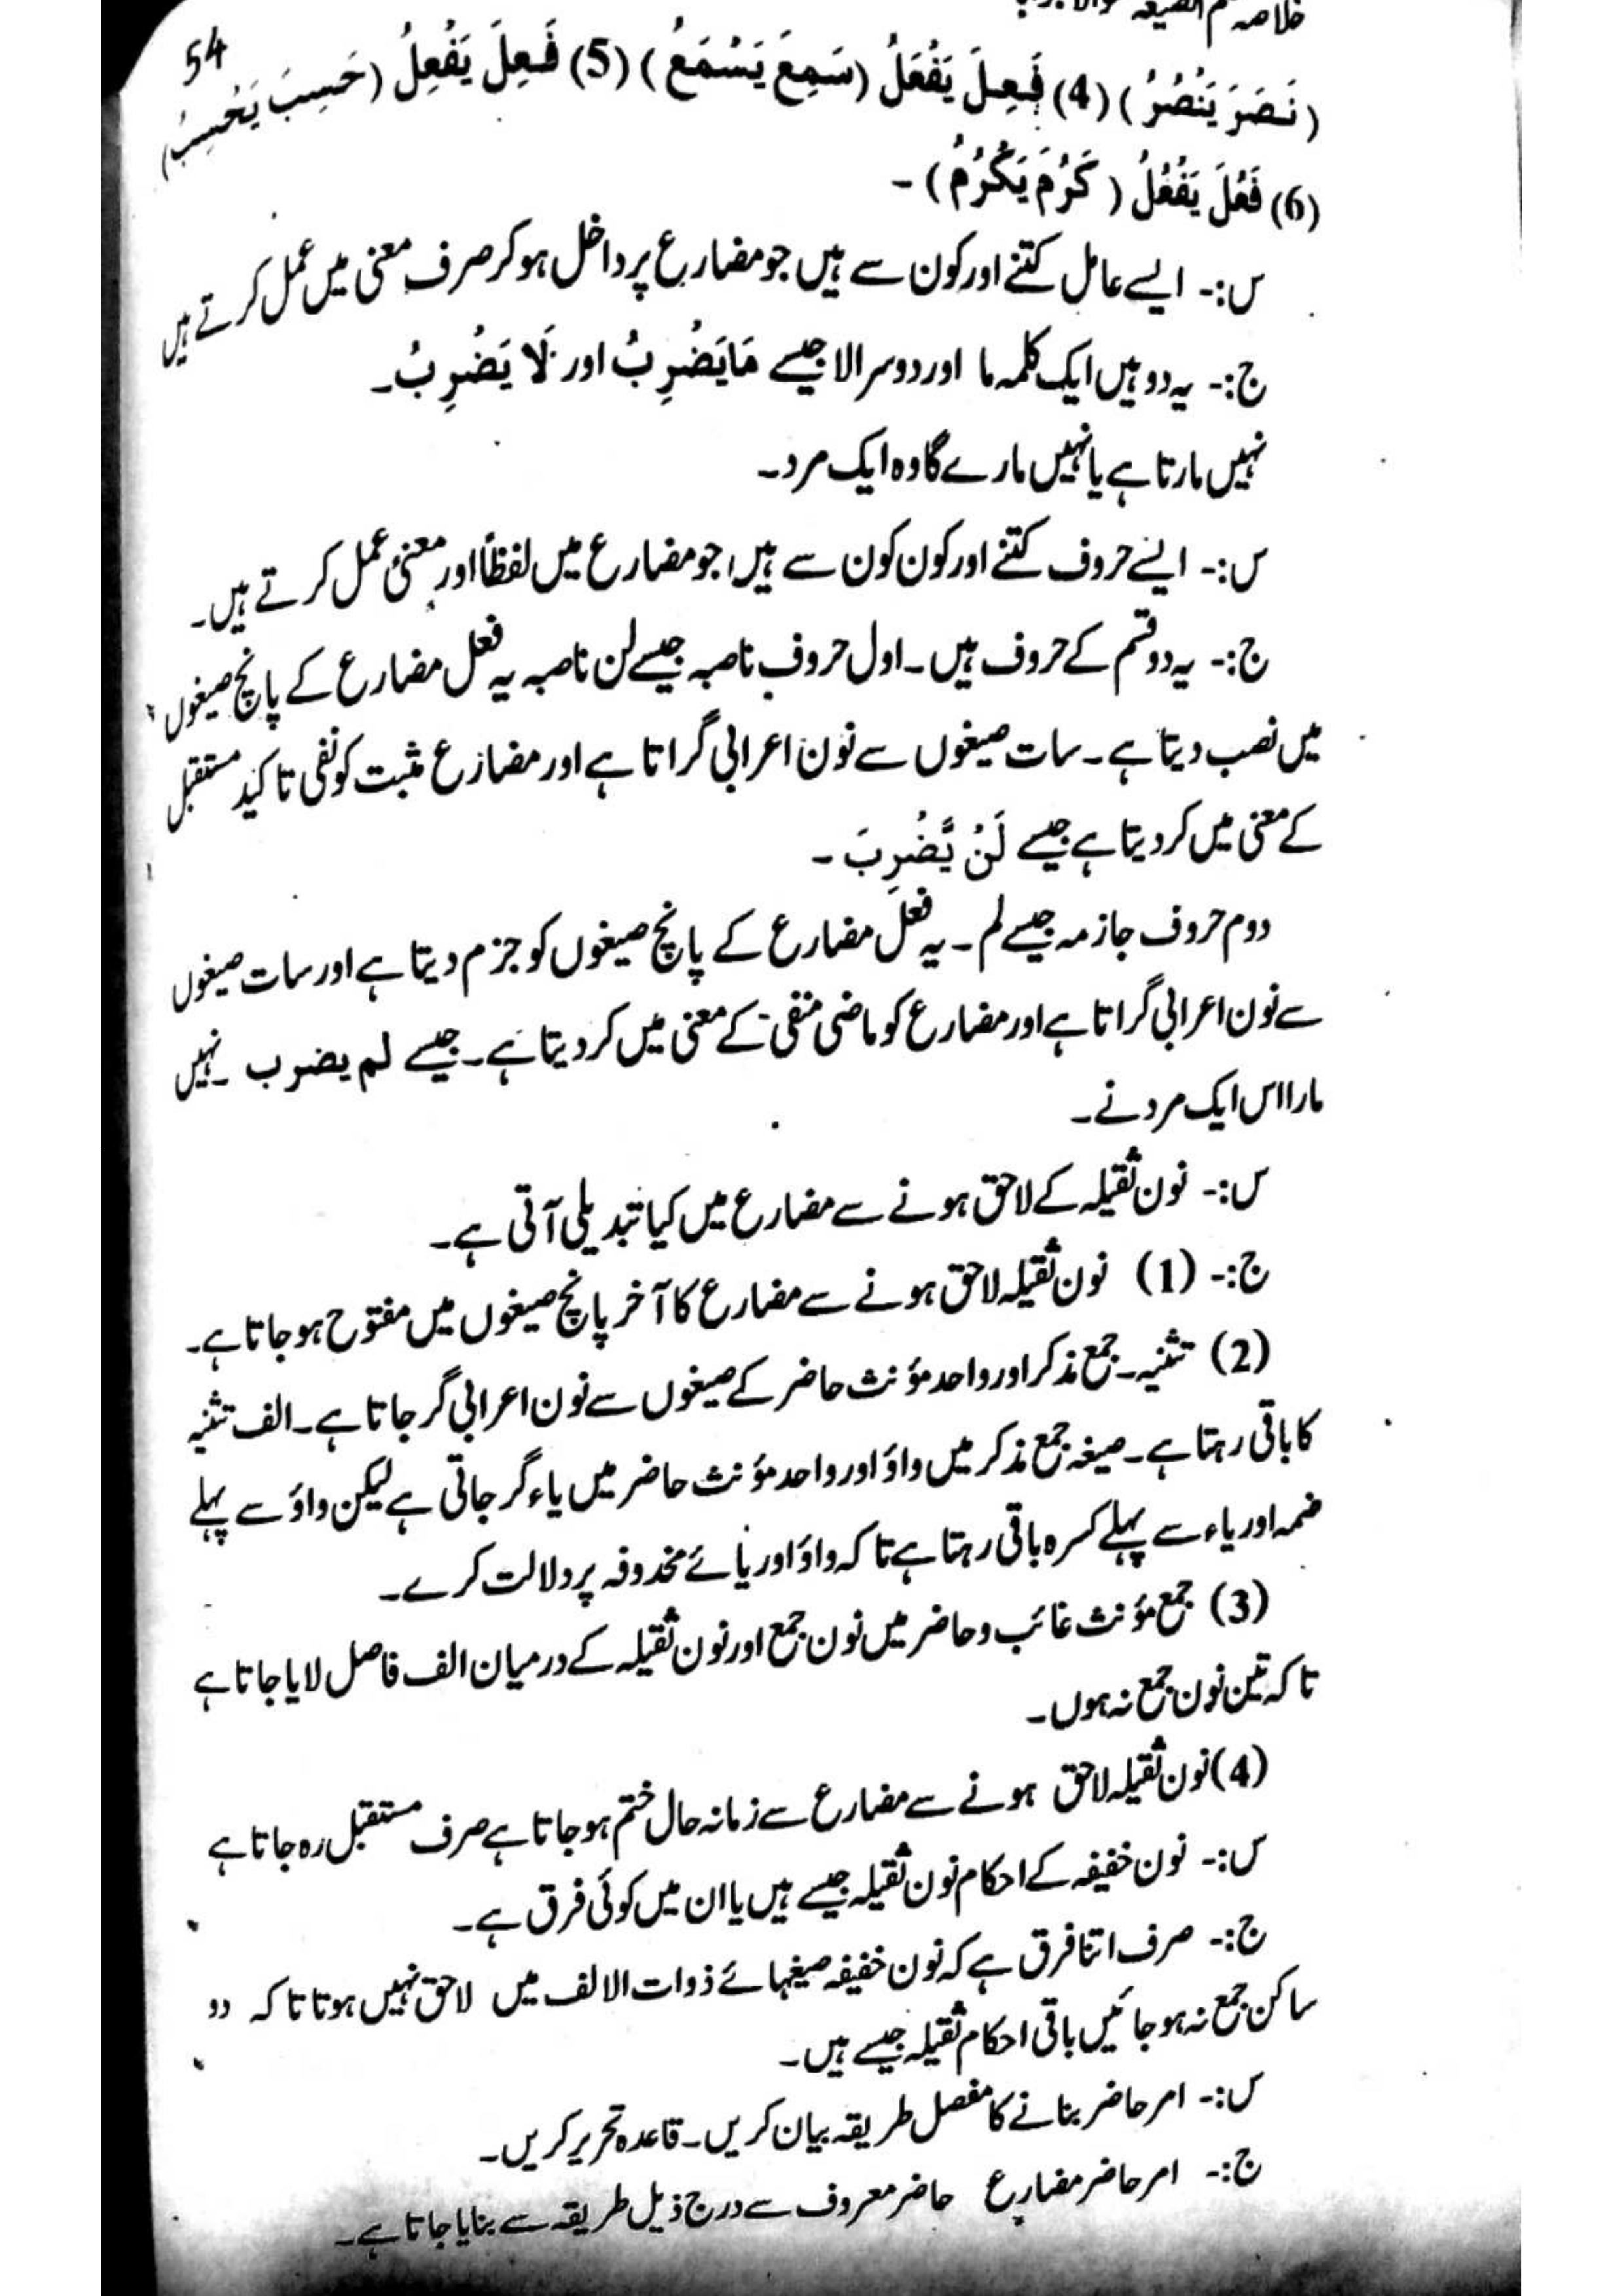 خلاصہ
54
(نَصَرَ يَنْصُرُ) (4) فَعِلَ يَفْعَلُ (سَمِعَ يَسْمَعُ) (5) فَعِلَ يَفْعِلُ (حَسِبَ يَحْسِبُ)
(6) فَعُلَ يَفْعُلُ (كَرُمَ يَكْرُمُ) ـ
س:۔ ایسے عامل کتنے اور کون سے ہیں جو مضارع پر داخل ہو کر صرف معنی میں عمل کرتے ہیں
ج:۔ یہ دو ہیں ایک کلمہ ما اور دوسرا لا جیسے مَا يَضْرِبُ اور لَا يَضْرِبُ۔
نہیں مارتا ہے یا نہیں مارے گا وہ ایک مرد۔
س:۔ ایسے حروف کتنے اور کون کون سے ہیں جو مضارع میں لفظاً اور معنیً عمل کرتے ہیں۔
ج:۔ یہ دو قسم کے حروف ہیں۔ اول حروف ناصبہ جیسے لن ناصبہ یہ فعل مضارع کے پانچ صیغوں
میں نصب دیتا ہے۔ سات صیغوں سے نون اعرابی گراتا ہے اور مضارع مثبت کو نفی تاکید مستقبل
کے معنی میں کر دیتا ہے جیسے لَنْ يَّضْرِبَ ۔
دوم حروف جازمہ جیسے لم۔ یہ فعل مضارع کے پانچ صیغوں کو جزم دیتا ہے اور سات صیغوں
سے نون اعرابی گراتا ہے اور مضارع کو ماضی منفی کے معنی میں کر دیتا ہے۔ جیسے لم یضرب ۔ نہیں
مارا اس ایک مرد نے۔
س:۔ نون ثقیلہ کے لاحق ہونے سے مضارع میں کیا تبدیلی آتی ہے۔
ج:۔ (1) نون ثقیلہ لاحق ہونے سے مضارع کا آخر پانچ صیغوں میں مفتوح ہو جاتا ہے۔
(2) تثنیہ۔ جمع مذکر اور واحد مؤنث حاضر کے صیغوں سے نون اعرابی گر جاتا ہے۔ الف تثنیہ
کا باقی رہتا ہے۔ صیغہ جمع مذکر میں واؤ اور واحد مؤنث حاضر میں یاء گر جاتی ہے لیکن واؤ سے پہلے
ضمہ اور یاء سے پہلے کسرہ باقی رہتا ہے تاکہ واؤ اور یائے مخدوفہ پر دلالت کرے۔
(3) جمع مؤنث غائب و حاضر میں نون جمع اور نون ثقیلہ کے درمیان الف فاصل لایا جاتا ہے
تاکہ تین نون جمع نہ ہوں۔
(4) نون ثقیلہ لاحق ہونے سے مضارع سے زمانہ حال ختم ہو جاتا ہے صرف مستقبل رہ جاتا ہے
س:۔ نون خفیفہ کے احکام نون ثقیلہ جیسے ہیں یا ان میں کوئی فرق ہے۔
ج:۔ صرف اتنا فرق ہے کہ نون خفیفہ صیغہائے ذوات الالف میں لاحق نہیں ہوتا تاکہ دو
ساکن جمع نہ ہو جائیں باقی احکام ثقیلہ جیسے ہیں۔
س:۔ امر حاضر بنانے کا مفصل طریقہ بیان کریں۔ قاعدہ تحریر کریں۔
ج:۔ امر حاضر مضارع حاضر معروف سے درج ذیل طریقہ سے بنایا جاتا ہے۔